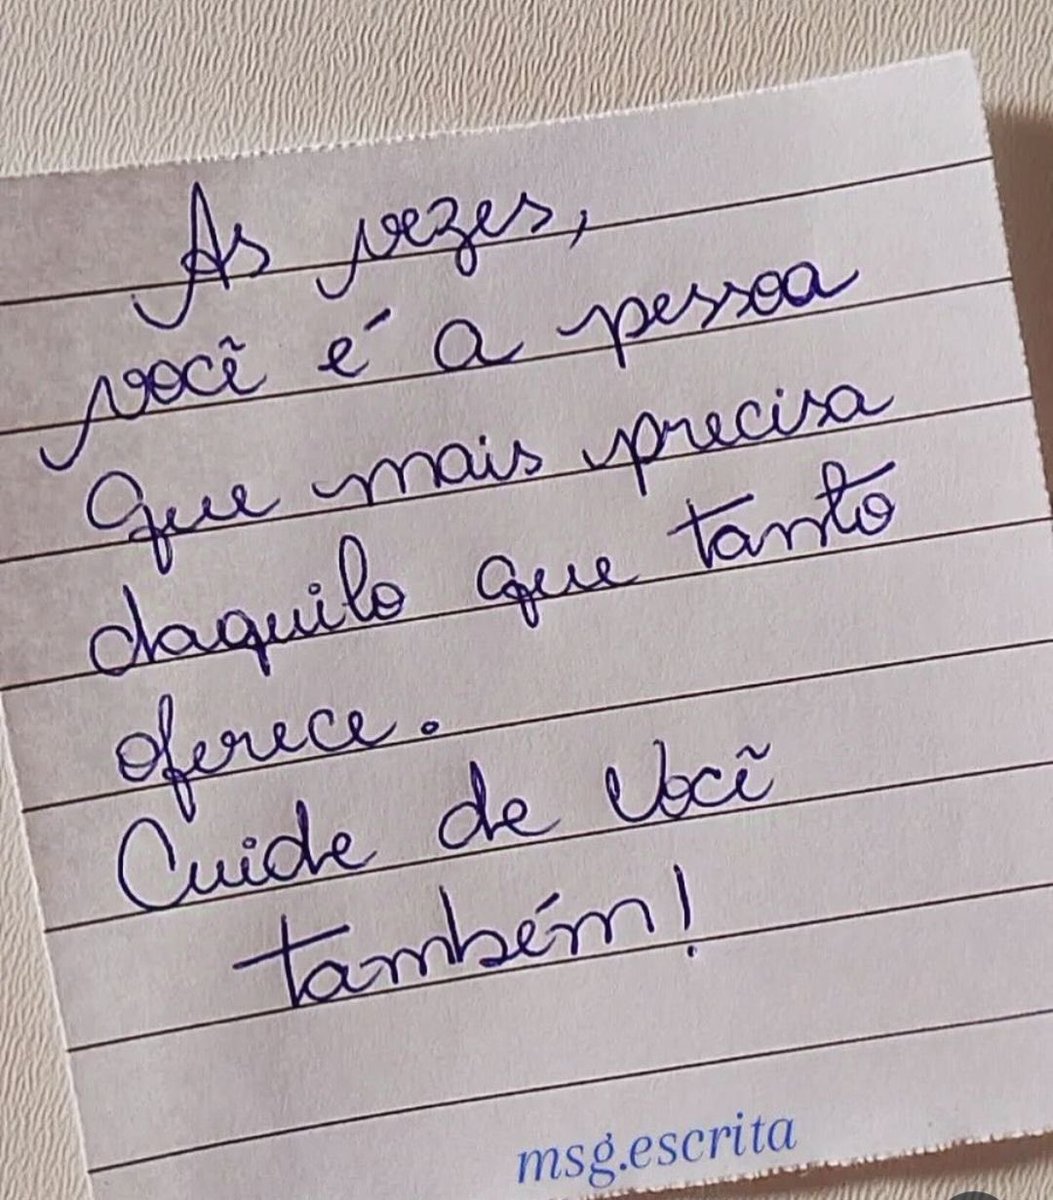 As vezes,
você é a pessoa
que mais precisa
daquilo que tanto
oferece.
Cuide de você
também!
msg.escrita